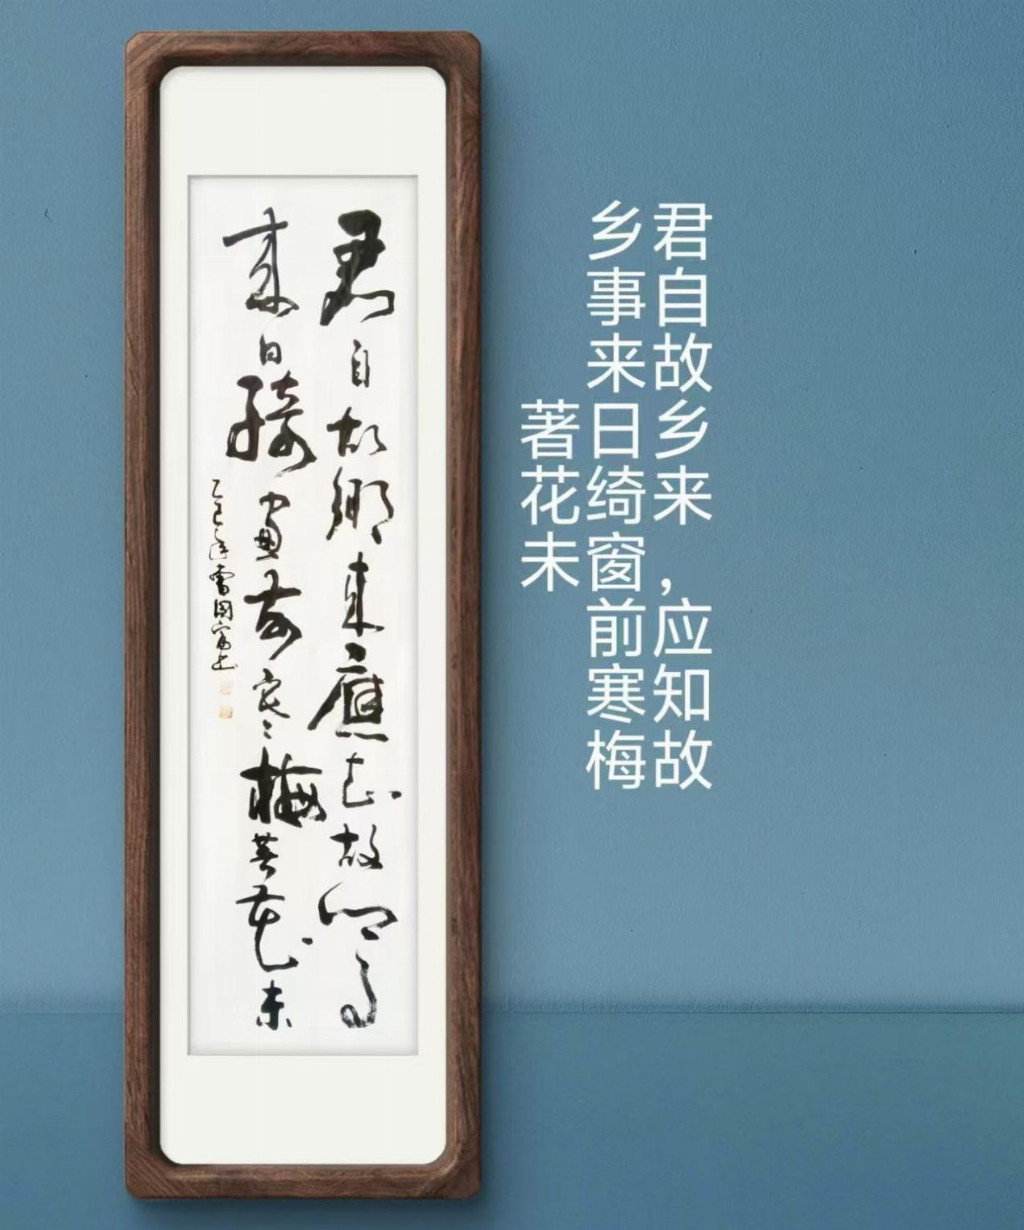 君自故鄉来應知故鄉事
来日綺窗前寒梅著花未
乙巳年雷国富书
君自故乡来，应知故
乡事来日绮窗前寒梅
著花未